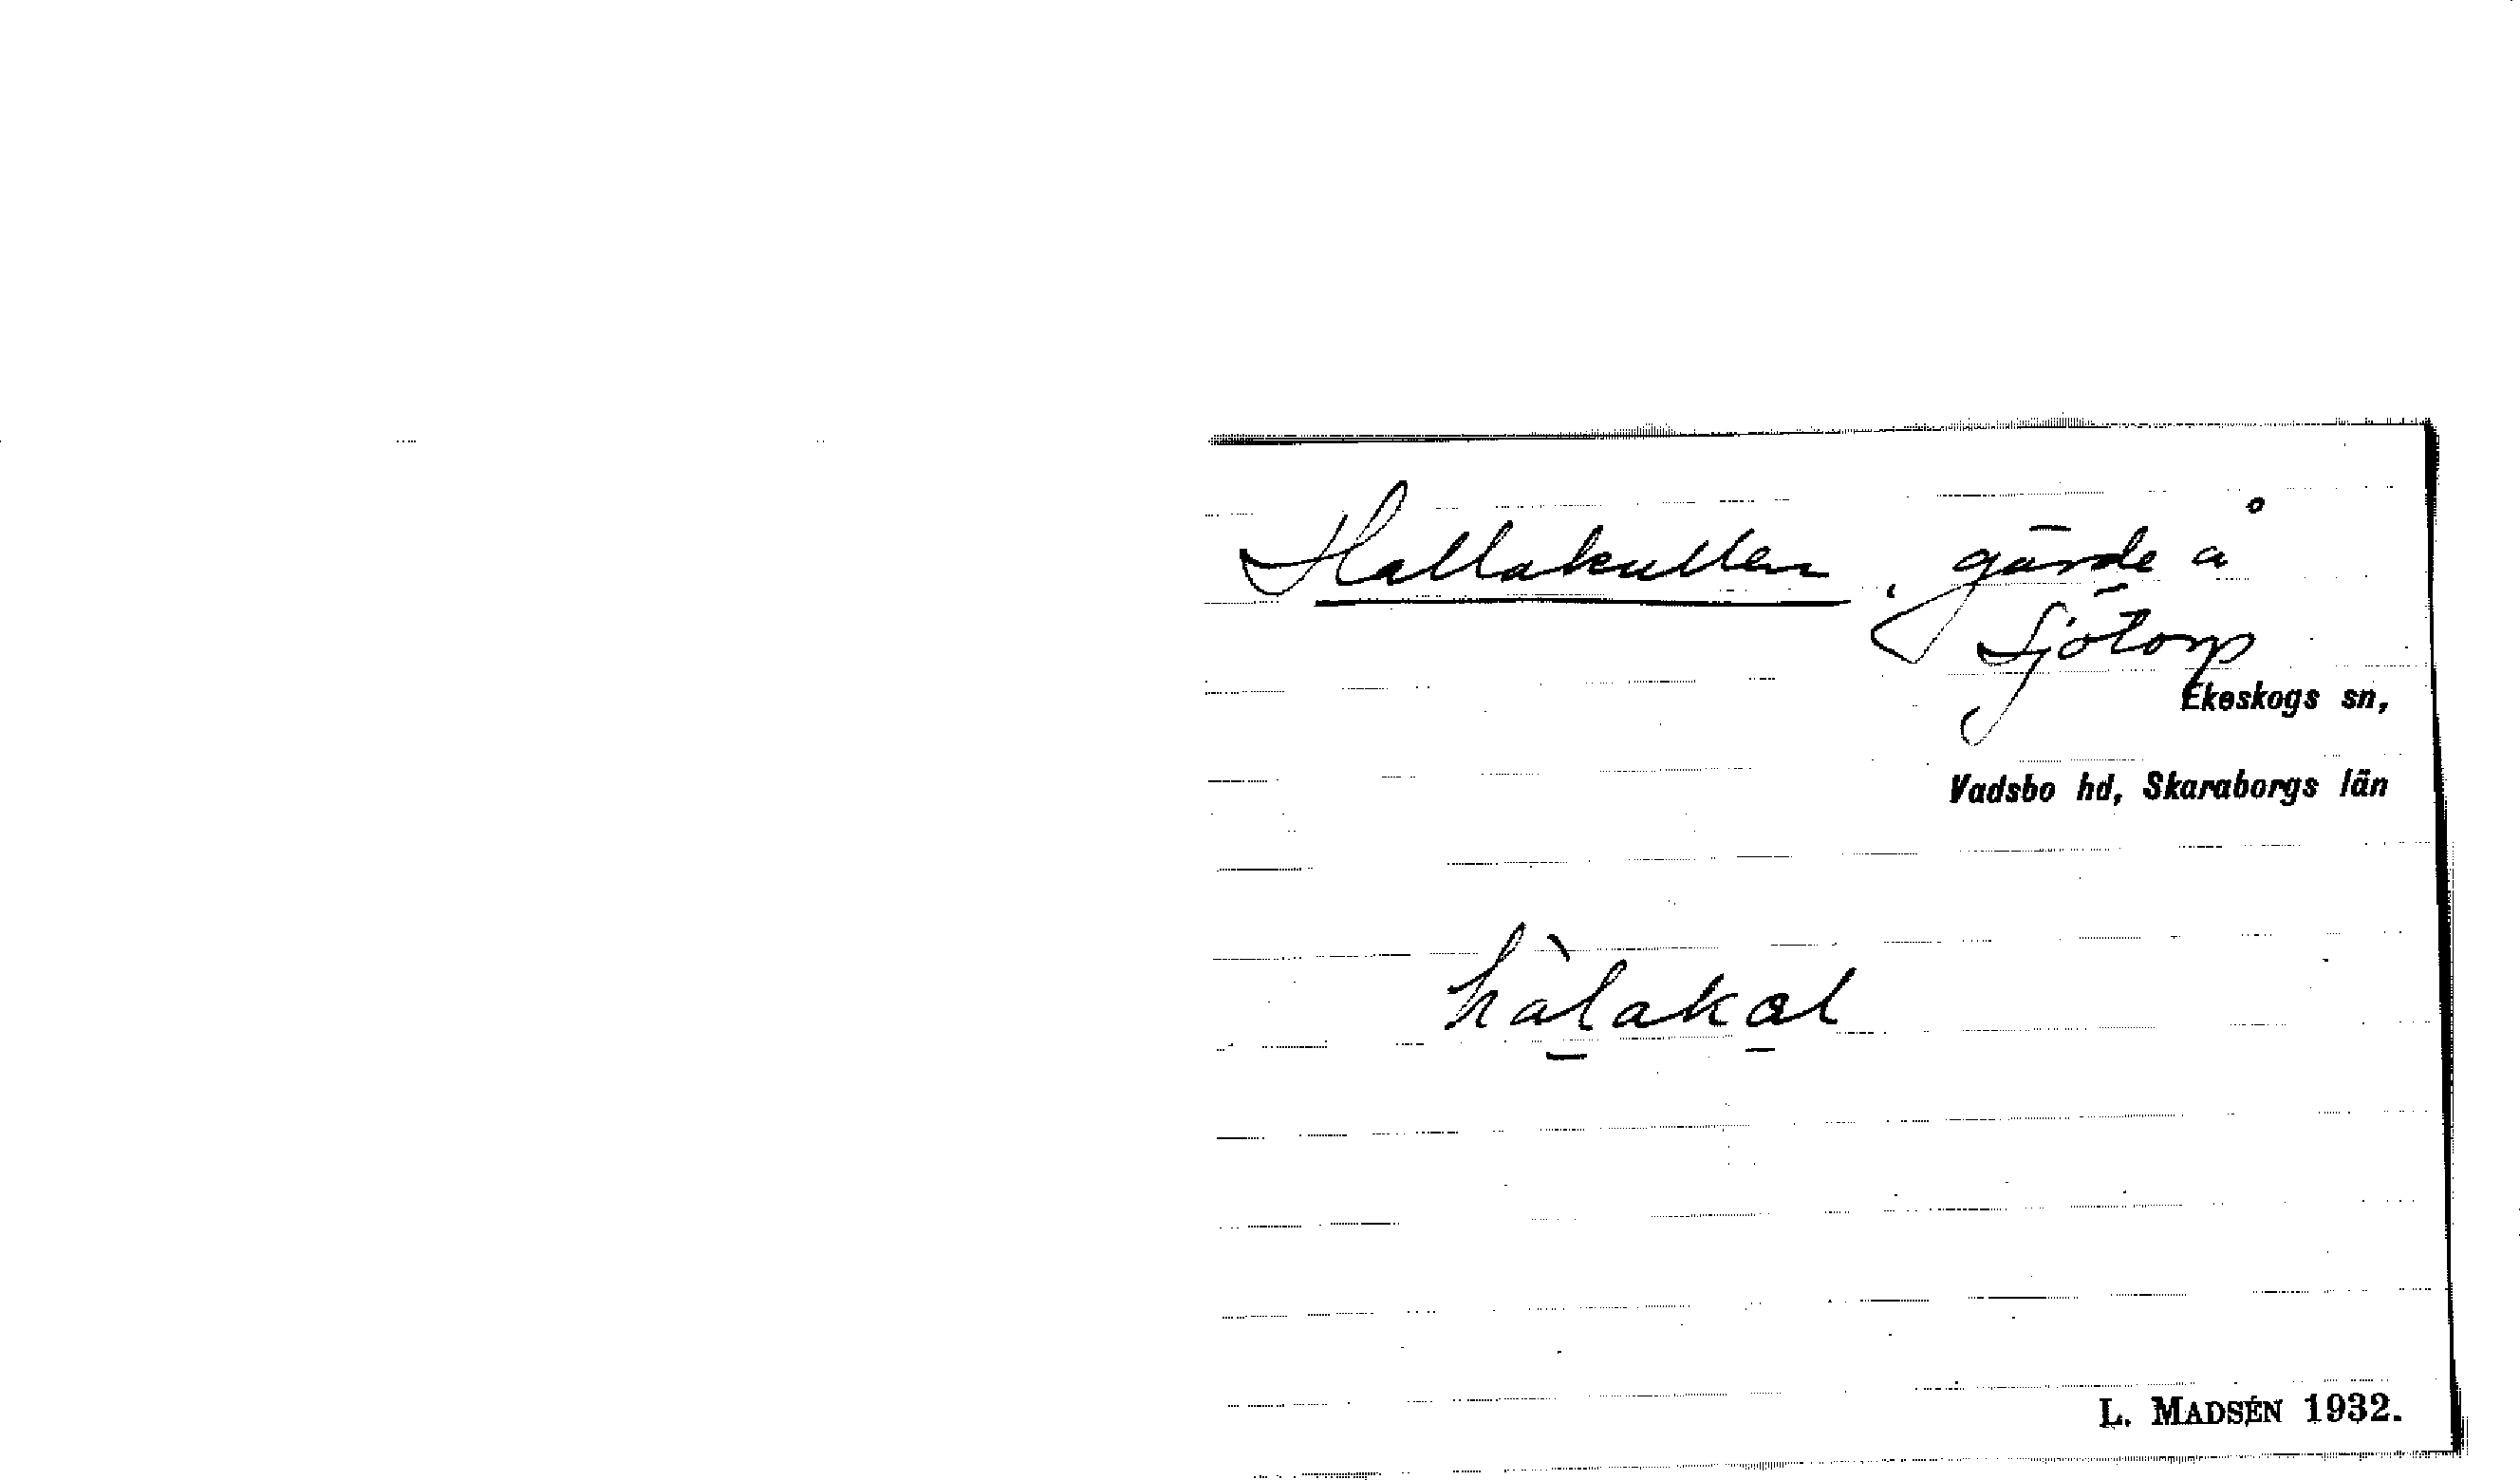 Hallakullen, gärde å
Sjötorp
Ekeskogs sn,
Vadsbo hd, Skaraborgs län
hàlakal
L. MADSÉN 1932.